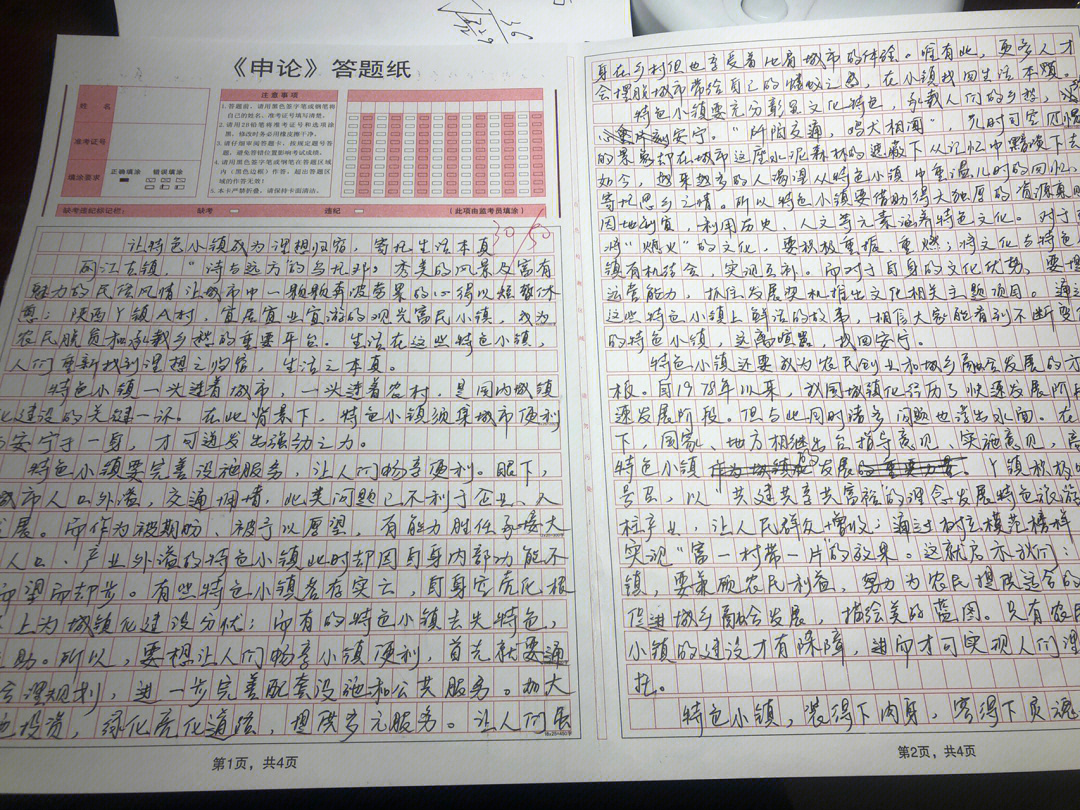 《申论》答题纸
姓 名
准考证号
填涂要求
正确填涂 错误填涂
注 意 事 项
1.答题前，请用黑色签字笔或钢笔将
自己的姓名、准考证号填写清楚。
2.请用2B铅笔将准考证号和选项涂
黑，修改时务必用橡皮擦干净。
3.请仔细审阅答题卡，按规定题号答
题，避免答错位置影响考试成绩。
4.请用黑色签字笔或钢笔在答题区域
内（黑色边框）作答，超出答题区
域的作答无效！
5.本卡严禁折叠，请保持卡面清洁。
缺考违纪标记栏： 缺考 违纪 （此项由监考员填涂）
30/50
让特色小镇成为理想归宿，寄托生活本真
丽江古镇，“诗与远方”的乌托邦，秀美的风景及富有
魅力的民俗风情让城市中一颗颗奔波劳累的心得以短暂休
憩；陕西丫镇A村，宜居宜业宜游的观光富民小镇，成为
农民脱贫和承载乡愁的重要平台。生活在这些特色小镇，
人们重新找到理想之归宿，生活之本真。
特色小镇一头连着城市，一头连着农村，是国内城镇
化建设的关键一环。在此背景下，特色小镇须集城市便利
与安宁于一身，才可迸发出强劲之力。
特色小镇要完善设施服务，让人们畅享便利。眼下，
城市人口外溢，交通拥堵，此类问题已不利于企业、人
发展。而作为被期盼、被予以厚望，有能力胜任承接大
人口、产业外溢的特色小镇此时却因自身内部功能不
而望而却步。有些特色小镇名存实亡，自身空壳化根
上为城镇化建设分忧；而有的特色小镇丢失特色，
助。所以，要想让人们畅享小镇便利，首先就要通
合理规划，进一步完善配套设施和公共服务。加大
投资，绿化亮化道路，提供多元服务。让人们虽
第1页，共4页
身在乡村但也享受着比肩城市的体验。唯有此，更多人才
会摆脱城市带给自己的烦忧之感，在小镇找回生活本真。
特色小镇要充分彰显文化特色，承载人们的乡愁，
安宁。“阡陌交通，鸡犬相闻”，儿时司空见惯
的景象却在城市这座水泥森林的遮蔽下从记忆中黯淡下去
如今，越来越多的人渴望从特色小镇中重温儿时的回忆，
寄托思乡之情。所以特色小镇要借助得天独厚的资源禀赋
因地制宜，利用历史、人文等元素涵养特色文化。对于
将“熄火”的文化，要积极重振、重燃；将文化与特色
镇有机结合，实现互补。而对于自身的文化优势，要提
运营能力，抓住发展契机推出文化相关主题项目。通过
这些特色小镇上鲜活的故事，相信大家能看到不断变
的特色小镇，远离喧嚣，找回安宁。
特色小镇还要成为农民创业和城乡融合发展的方
板。自1978年以来，我国城镇化经历了快速发展阶段
速发展阶段。但与此同时诸多问题也浮出水面。在
下，国家、地方相继出台指导意见、实施意见，高
特色小镇发展。丫镇积极响
号召，以“共建共享共富裕”的理念发展特色旅游
柱产业，让人民群众增收；通过树立模范榜样
实现“富一村带一片”的效果。这就启示我们：
镇，要兼顾农民利益，努力为农民提供适合的
促进城乡融合发展，描绘美的蓝图。只有农民
小镇的建设才有保障，进而才可实现人们理
托。
特色小镇，装得下肉身，容得下灵魂
第2页，共4页